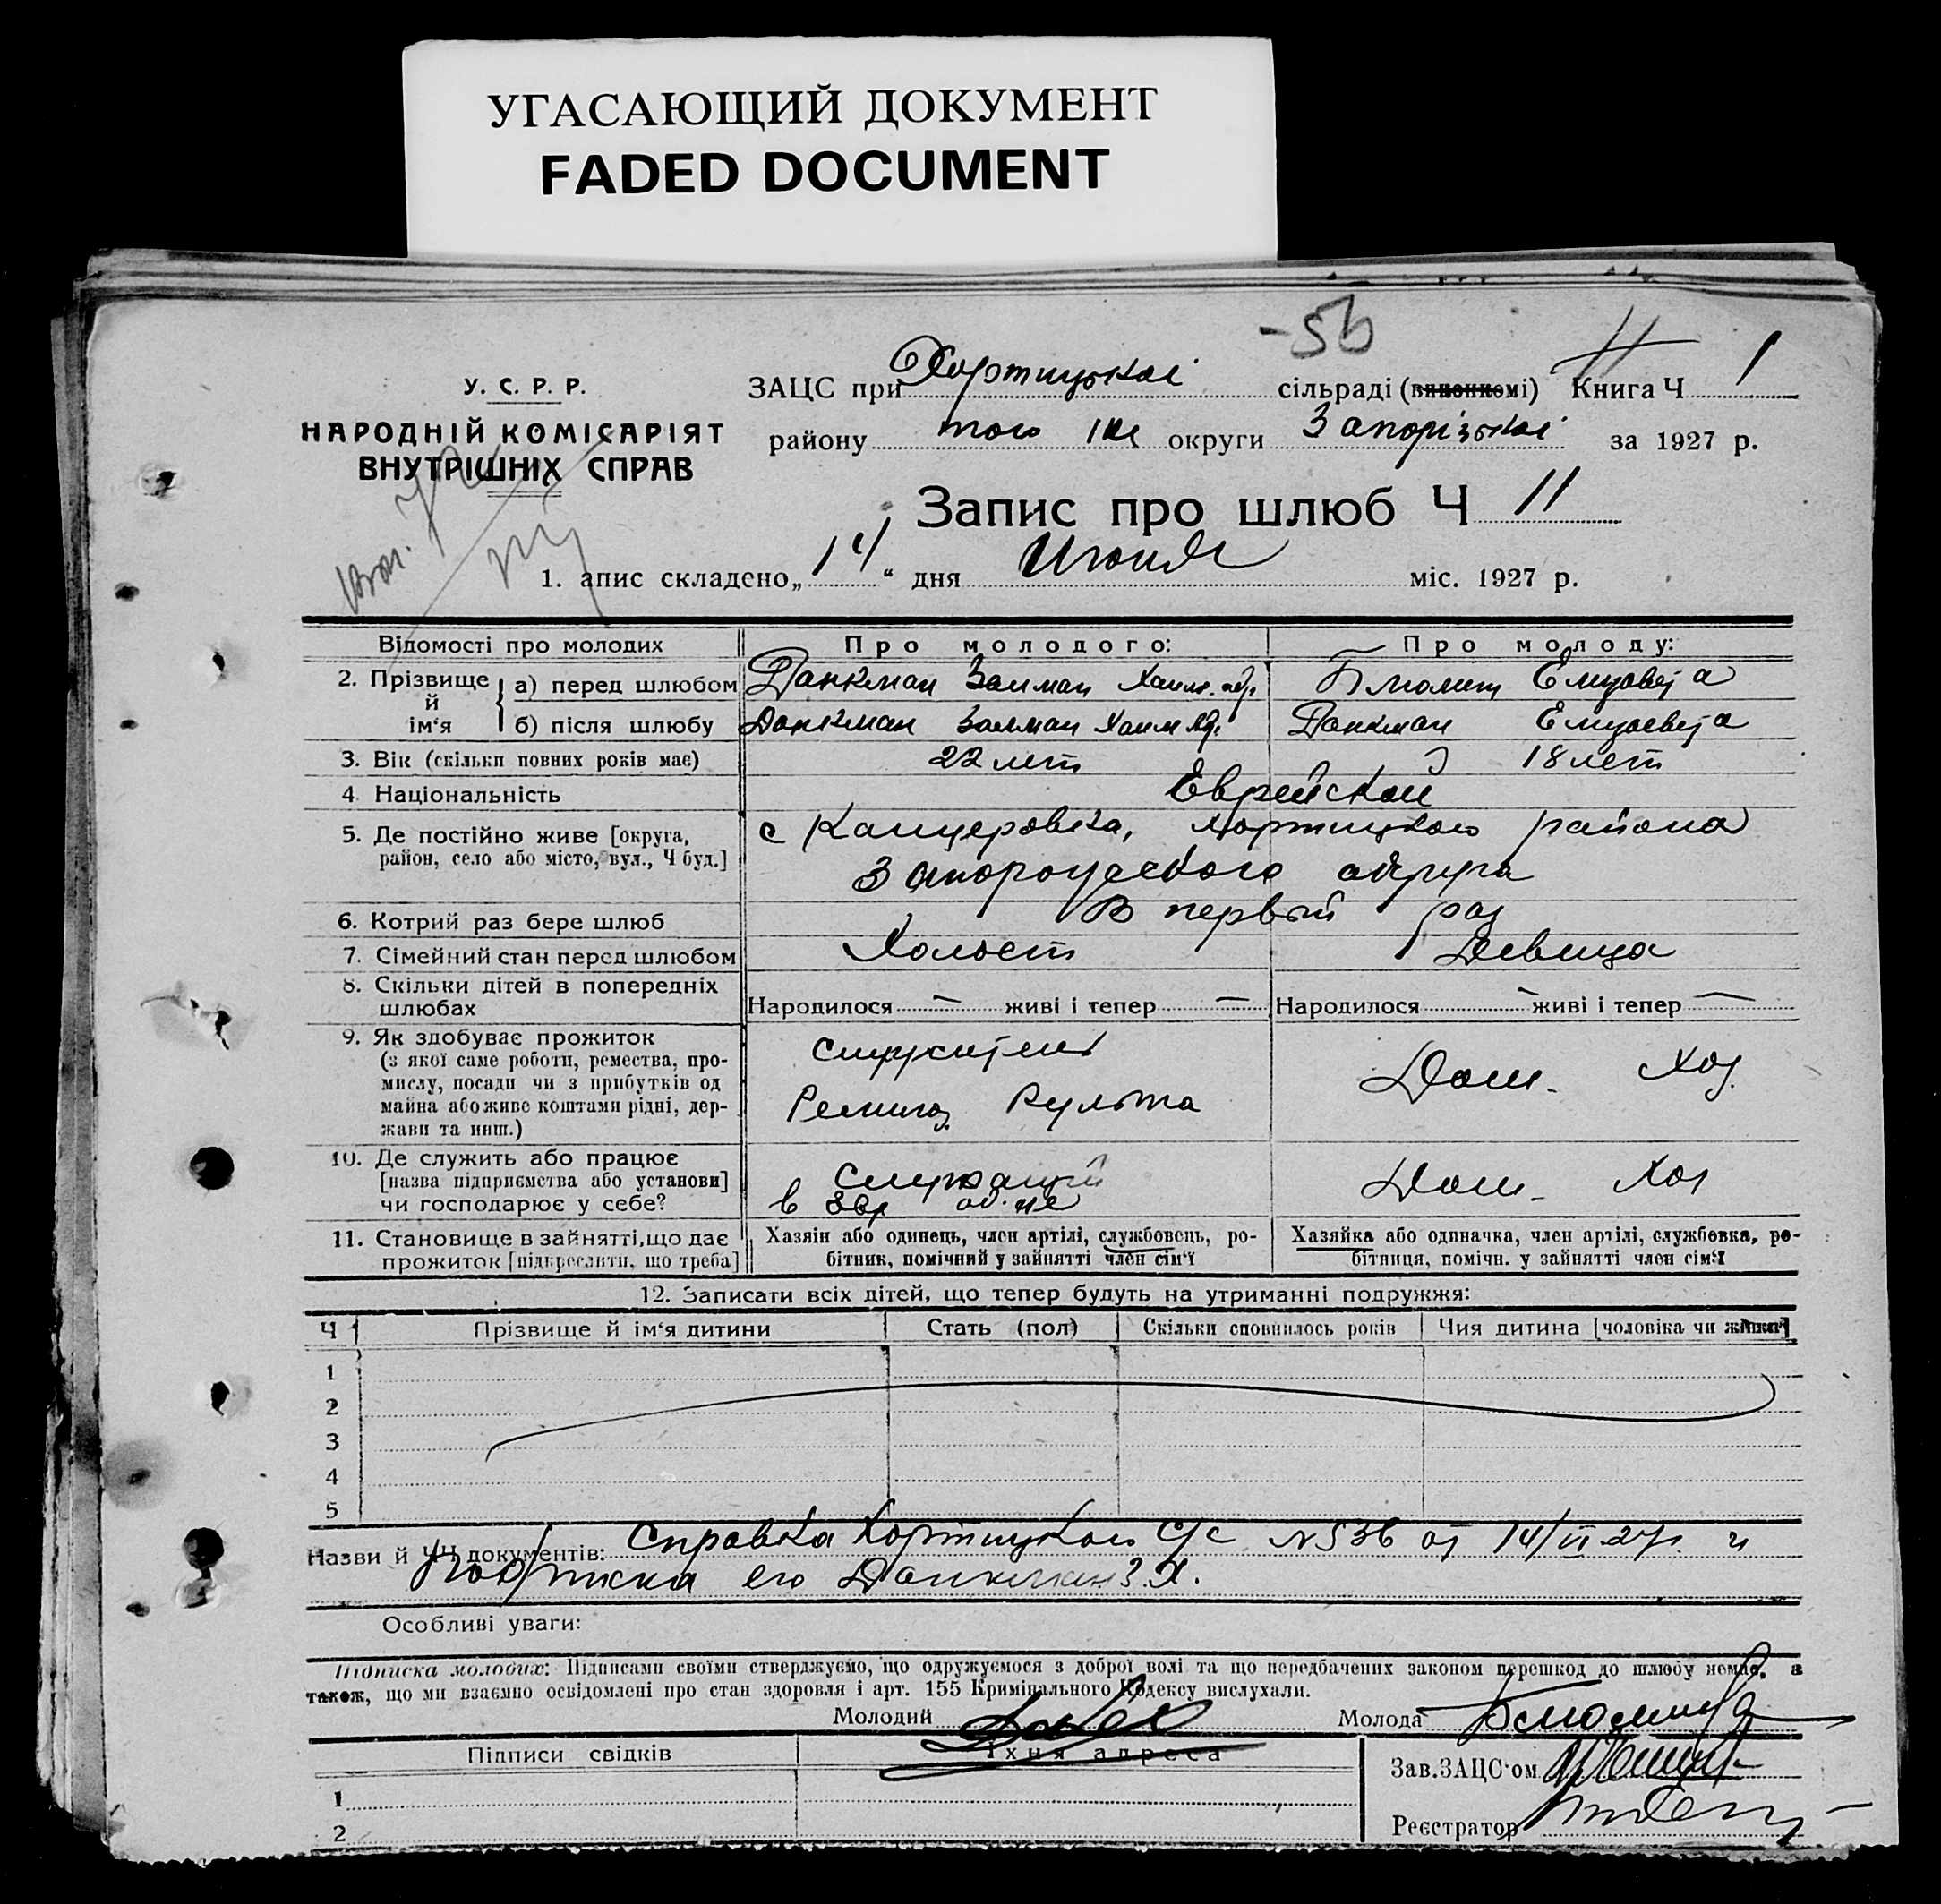 УГАСАЮЩИЙ ДОКУМЕНТ
FADED DOCUMENT
У. С. Р. Р.
НАРОДНІЙ КОМІСАРІЯТ
ВНУТРІШНІХ СПРАВ
ЗАЦС при Хортицької сільраді (виконкомі) Книга Ч 1
району того же округи Запорізької за 1927 р.
Запис про шлюб Ч 11
1. апис складено „14“ дня Июня міс. 1927 р.
Відомості про молодих Про молодого: Про молоду:
2. Прізвище й ім‘я
а) перед шлюбом Данкман Залман Елизавета
б) після шлюбу Данкман Залман Данкман Елизавета
3. Вік (скільки повних років має) 22 лет 18 лет
4. Національність Еврейской
5. Де постійно живе [округа, с Канцеровка, Хортицкого района
район, село або місто, вул., Ч буд.] Запорожского округа
6. Котрий раз бере шлюб В первый раз
7. Сімейний стан перед шлюбом Холост Девица
8. Скільки дітей в попередніх
шлюбах Народилося — живі і тепер — Народилося — живі і тепер —
9. Як здобуває прожиток Служитель
(з якої саме роботи, ремества, про- Дом. Хоз.
мислу, посади чи з прибутків од
майна або живе коштами рідні, дер- Религ. Культа
жави та инш.)
10. Де служить або працює Служащий Дом. Хоз
[назва підприємства або установи] в Евр об-не
чи господарює у себе?
11. Становище в зайнятті, що дає Хазяін або одинець, член артілі, службовець, ро- Хазяйка або одиначка, член артілі, службовка, ро-
прожиток [підкреслити, що треба] бітник, помічний у зайнятті член сім‘ї бітниця, помічн. у зайнятті член сім‘ї
12. Записати всіх дітей, що тепер будуть на утриманні подружжя:
Ч Прізвище й ім‘я дитини Стать (пол) Скільки сповнилось років Чия дитина [чоловіка чи жінки]
1
2
3
4
5
Назви й ЧЧ документів: Справка Хортицкого С/с N 536 от 14/VI 27г. и
Подписка его Данкман З.Х.
Особливі уваги:
Підписка молодих: Підписами своїми стверджуємо, що одружуємося з доброї волі та що передбачених законом перешкод до шлюбу немає, а
також, що ми взаємно освідомлені про стан здоровля і арт. 155 Кримінального Кодексу вислухали.
Молодий Молода
Підписи свідків Їхня адреса
Зав.ЗАЦС‘ом
1
Реєстратор
2